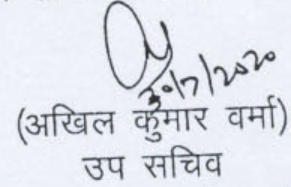 30/7/2020
(अखिल कुमार वर्मा)
उप सचिव